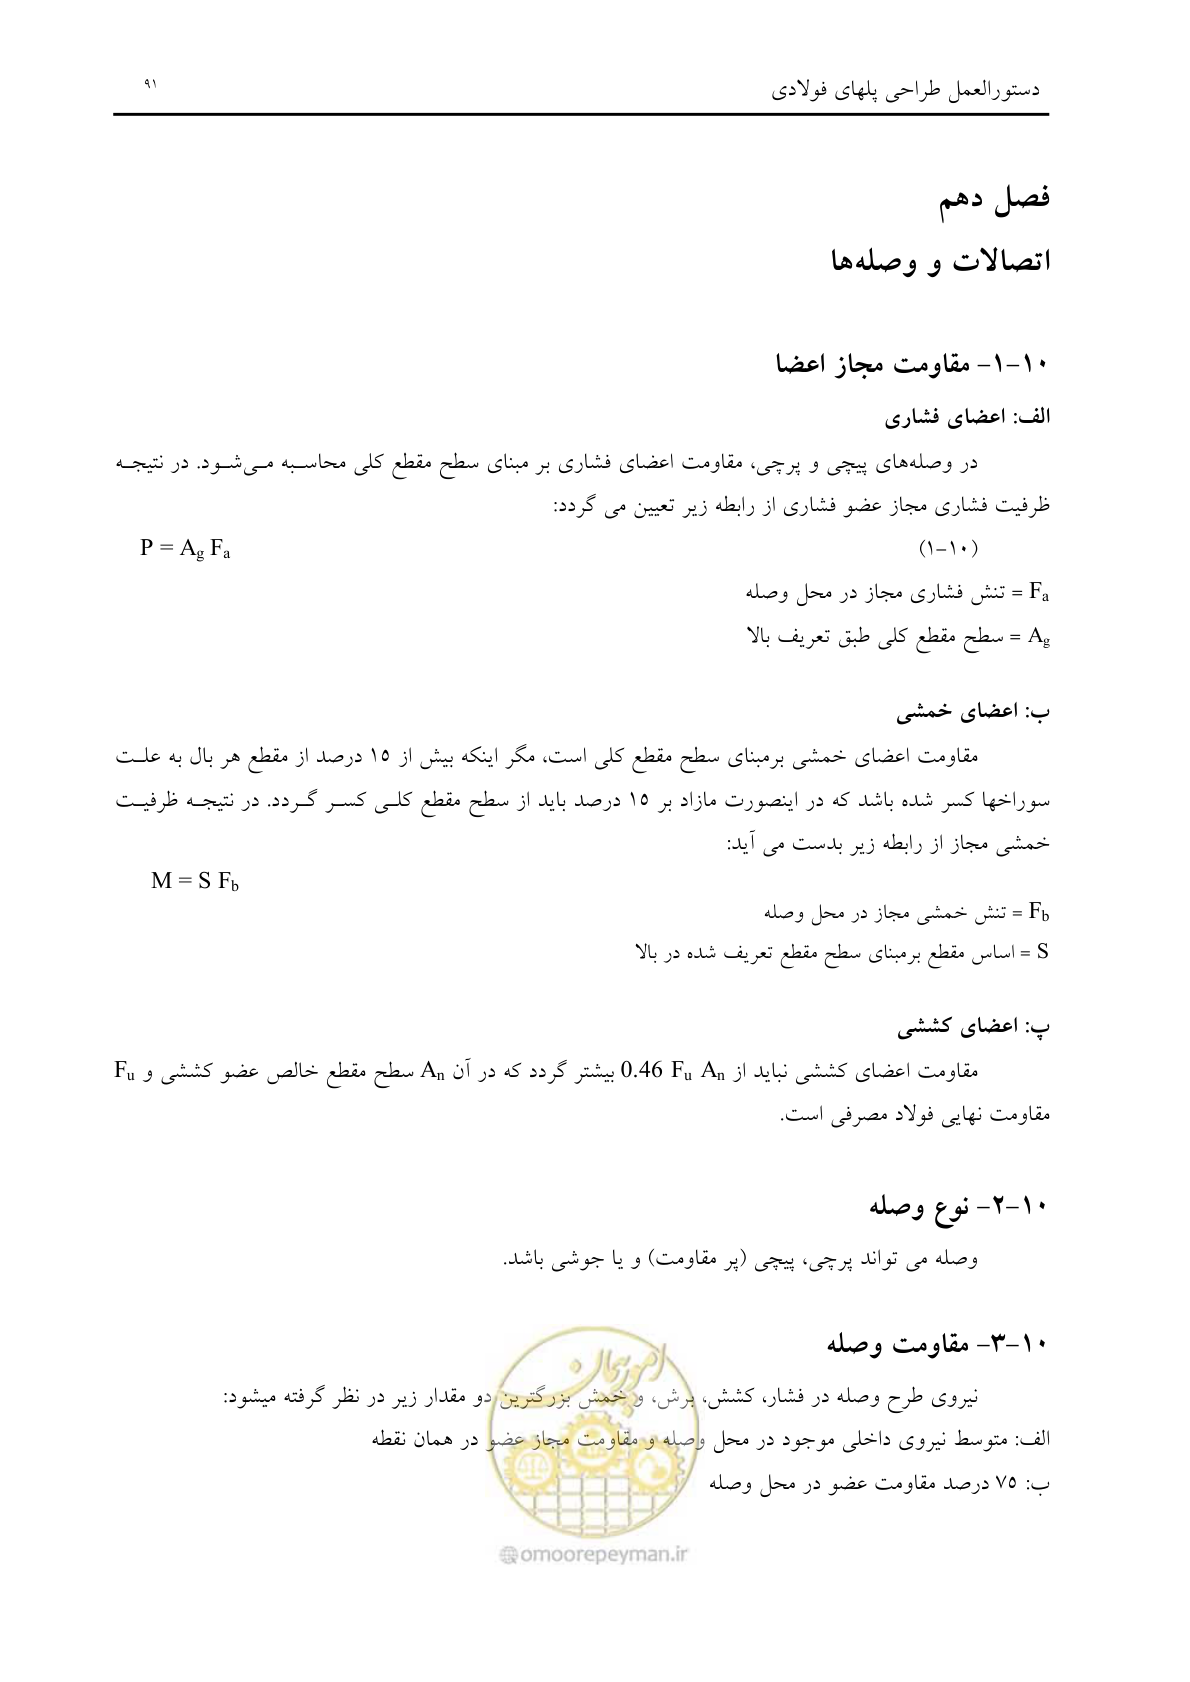 دستورالعمل طراحی پلهای فولادی ۹۱
فصل دهم
اتصالات و وصله‌ها
۱۰-۱- مقاومت مجاز اعضا
الف: اعضای فشاری
در وصله‌های پیچی و پرچی، مقاومت اعضای فشاری بر مبنای سطح مقطع کلی محاسبه می‌شود. در نتیجه
ظرفیت فشاری مجاز عضو فشاری از رابطه زیر تعیین می گردد:
(۱۰-۱) P = Ag Fa
Fa = تنش فشاری مجاز در محل وصله
Ag = سطح مقطع کلی طبق تعریف بالا
ب: اعضای خمشی
مقاومت اعضای خمشی برمبنای سطح مقطع کلی است، مگر اینکه بیش از ۱۵ درصد از مقطع هر بال به علت
سوراخها کسر شده باشد که در اینصورت مازاد بر ۱۵ درصد باید از سطح مقطع کلی کسر گردد. در نتیجه ظرفیت
خمشی مجاز از رابطه زیر بدست می آید:
M = S Fb
Fb = تنش خمشی مجاز در محل وصله
S = اساس مقطع برمبنای سطح مقطع تعریف شده در بالا
پ: اعضای کششی
مقاومت اعضای کششی نباید از 0.46 Fu An بیشتر گردد که در آن An سطح مقطع خالص عضو کششی و Fu
مقاومت نهایی فولاد مصرفی است.
۱۰-۲- نوع وصله
وصله می تواند پرچی، پیچی (پر مقاومت) و یا جوشی باشد.
۱۰-۳- مقاومت وصله
نیروی طرح وصله در فشار، کشش، برش، و خمش بزرگترین دو مقدار زیر در نظر گرفته میشود:
الف: متوسط نیروی داخلی موجود در محل وصله و مقاومت مجاز عضو در همان نقطه
ب: ۷۵ درصد مقاومت عضو در محل وصله
امور پیمان
@omoorepeyman.ir